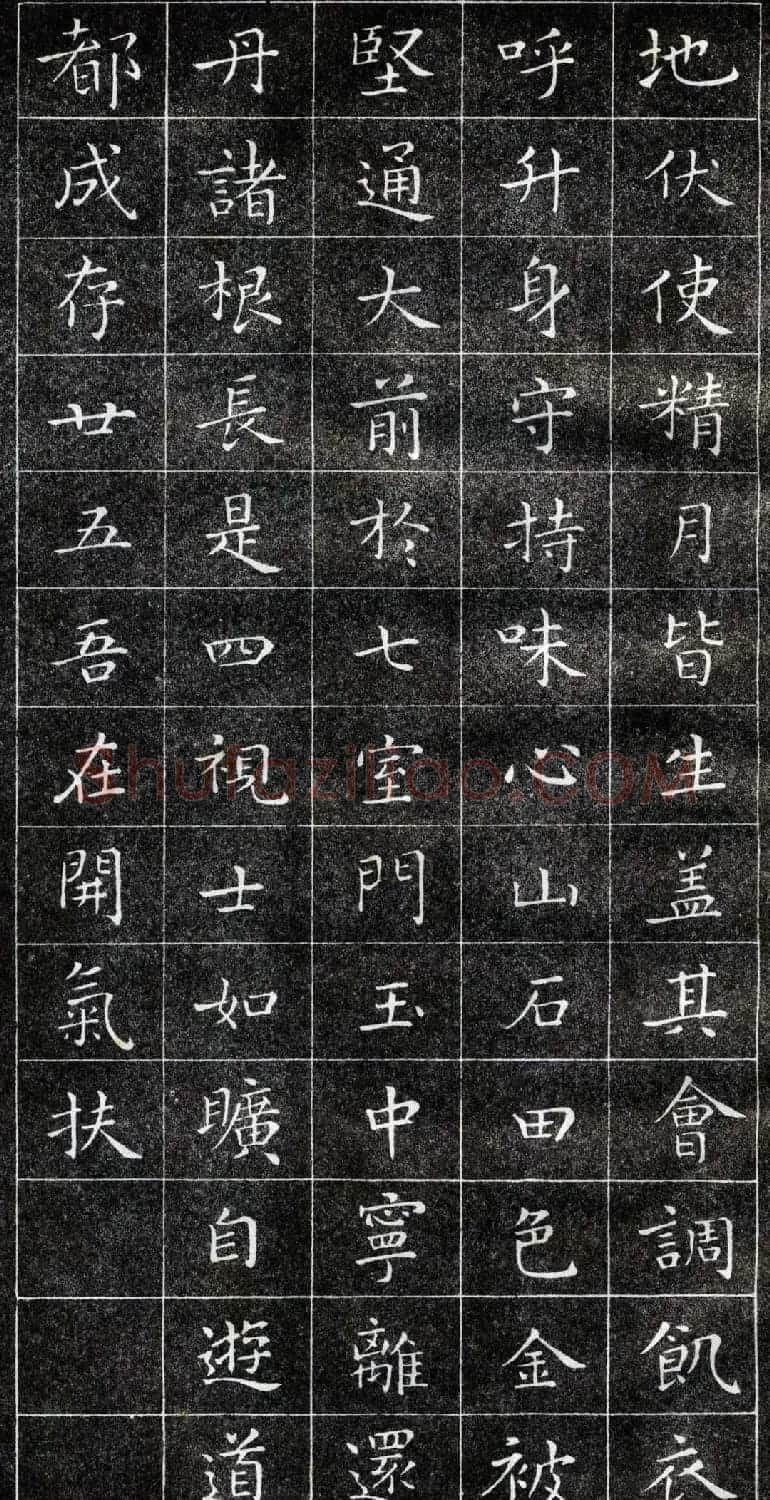 地伏使精月皆生盖其會調飢衣
呼升身守持味心山石田色金被
堅通大前於七室門玉中寧離還
丹諸根長是四視士如曠自遊道
都成存廿五吾在開氣扶
Shufaziliao.COM